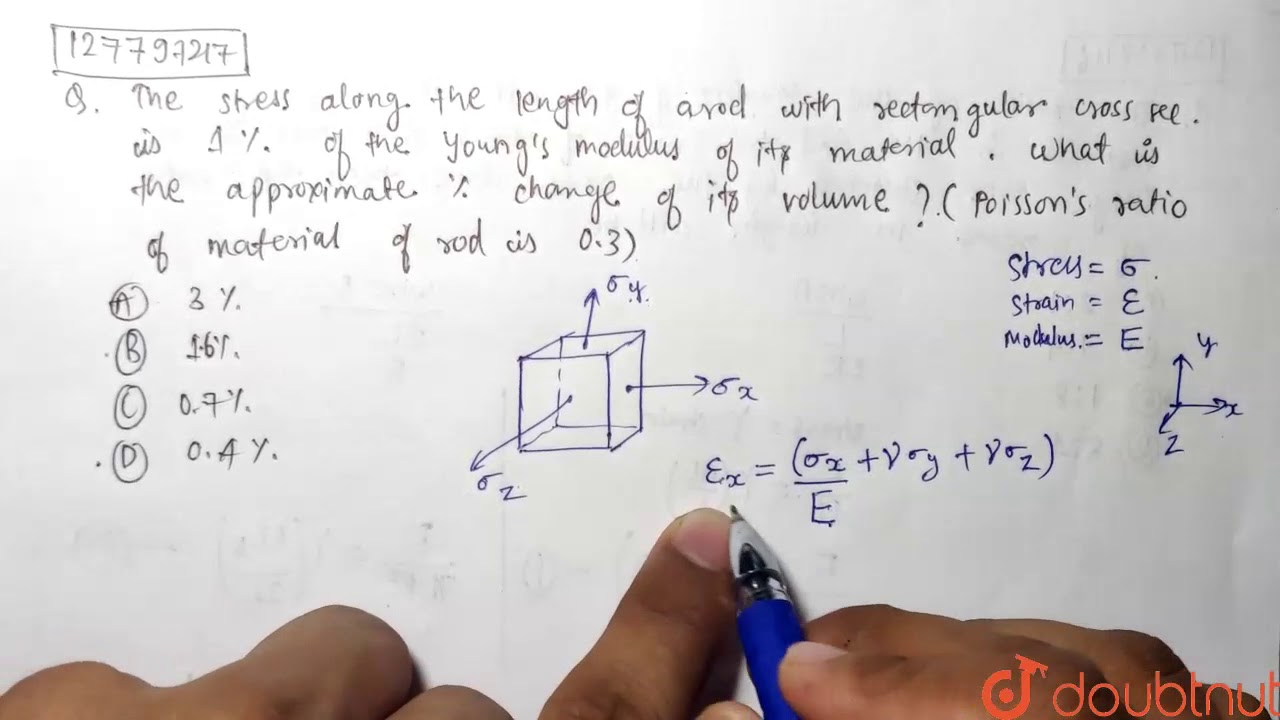 127797217
Q. The stress along the length of a rod with rectangular cross sec.
is 1%. of the Young's modulus of its material. What is
the approximate % change of its volume ? (Poisson's ratio
of material of rod is 0.3)
(A) 3 %.
(B) 1.6%.
(C) 0.7%.
(D) 0.4 %.
Stress = σ.
Strain = ε
Modulus. = E
σy.
σx
σz
y
x
z
εx = (σx + νσy + νσz)
E
doubtnut